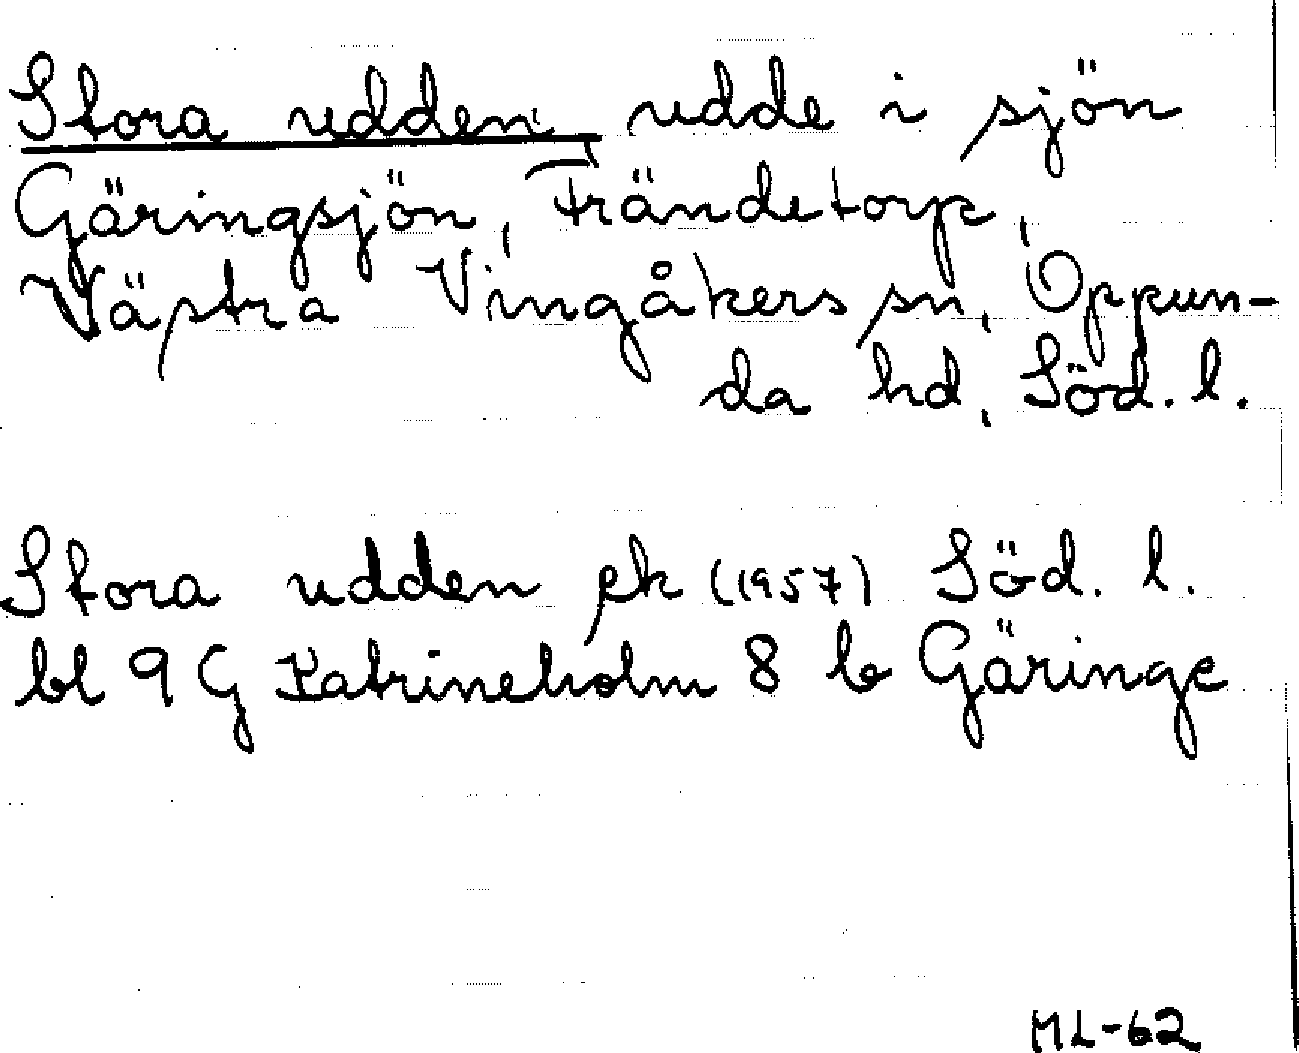 Stora udden, udde i sjön
Gäringsjön, Frändetorp,
Västra Vingåkers sn, Oppun-
da hd, Söd. l.
Stora udden ek (1957) Söd. l.
bl 9 G Katrineholm 8 b Gäringe
ML-62